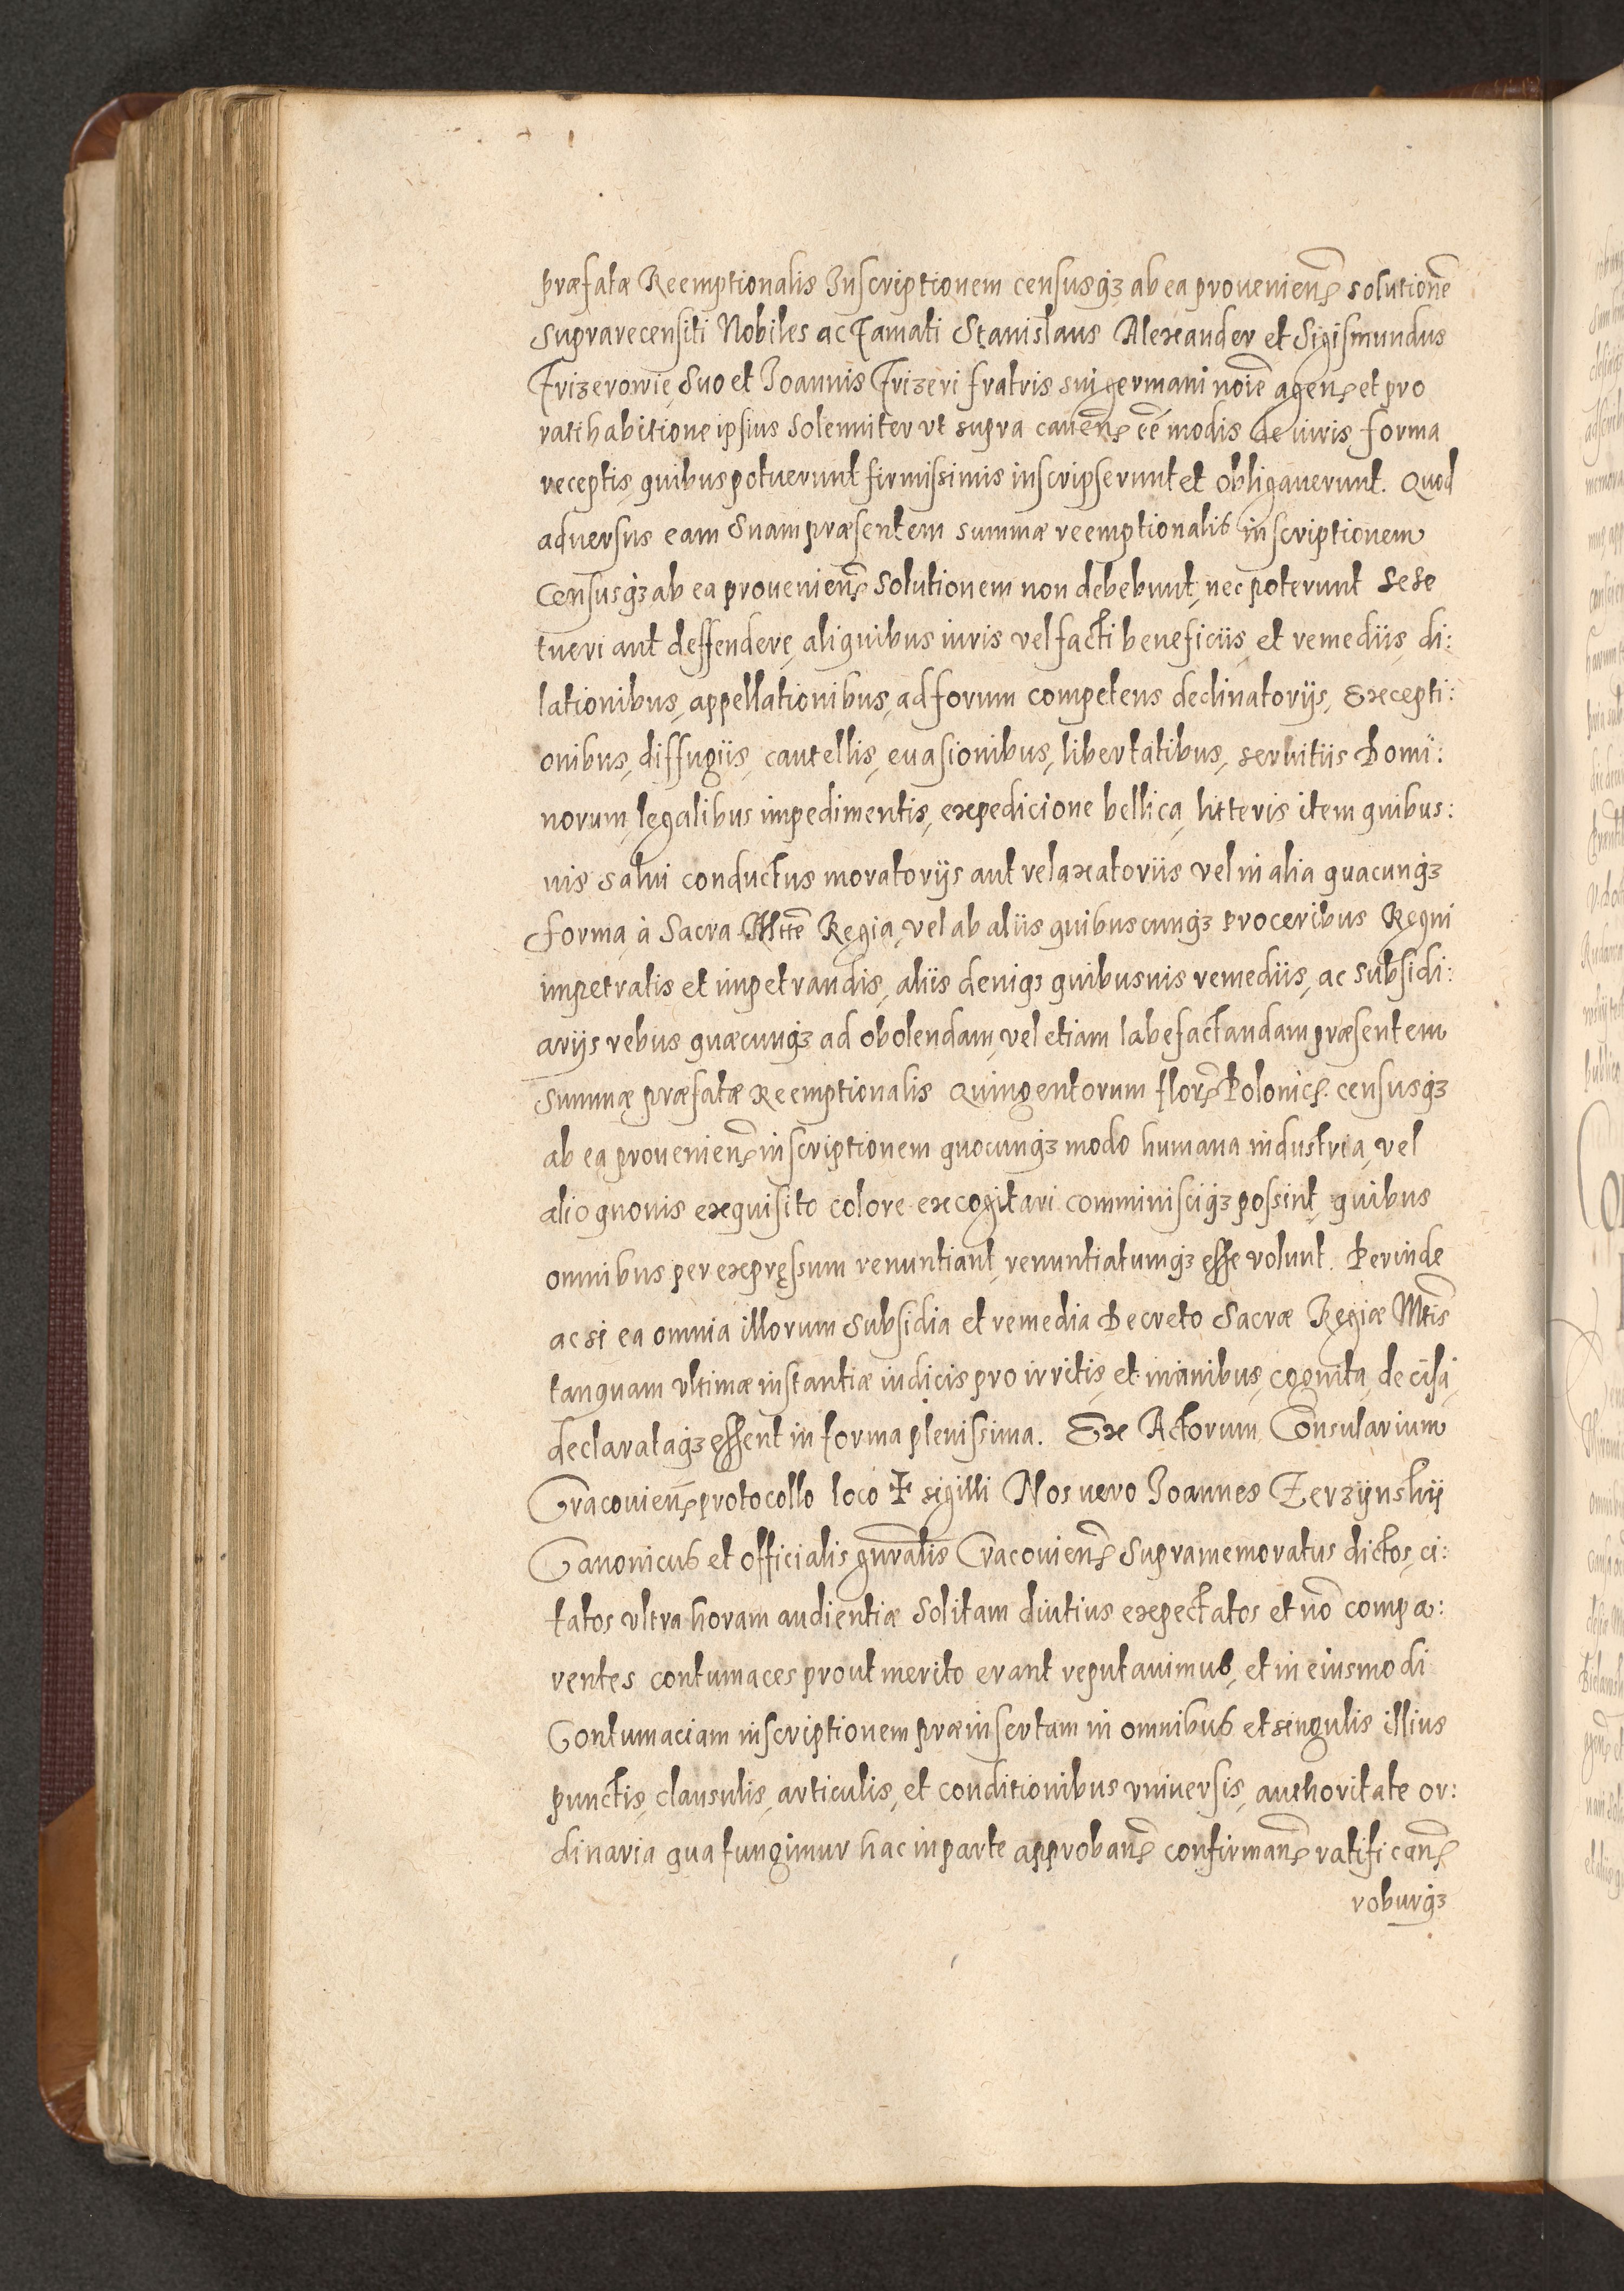 præfatæ Reemptionalis Inscriptionem censusq́ȝ ab ea prouenien̄ꝭ solutionē
suprarecensiti Nobiles ac Famati Stanislaus Alexander et Sigismundus
Frizerowie, suo et Joannis Frizeri fratris sui germani noīe agenꝭ et pro
ratihabitione ipsius solenniter vt supra cauen̄ꝭ eē modis de iuris forma
receptis, quibus potuerunt firmissimis inscripserunt et obligauerunt. Quod
aduersus eam suam præsentem summæ reemptionalis inscriptionem
censusq́ȝ ab ea prouenien̄ꝭ solutionem non debebunt, nec poterunt sese
tueri aut deffendere, aliquibus iuris vel facti beneficiis, et remediis, di:
lationibus, appellationibus, ad forum competens declinatoriis, Excepti:
onibus, diffugiis, cautellis, euasionibus, libertatibus, seruitiis Domi:
norum, legalibus impedimentis, expedicione bellica, litteris item quibus:
uis salui conductus moratoriis aut relaxatoriis vel in alia quacunq́ȝ
forma, à Sacra Mtte Regia, vel ab aliis quibuscunq́ȝ proceribus Regni
impetratis et impetrandis, aliis deniqȝ quibusuis remediis, ac subsidi:
ariis rebus quæcunq́ȝ ad obolendam, vel etiam labefactandam præsentem
summæ præfatæ Reemptionalis Quingentorum florꝭ Polonicꝭ. censusq́ȝ
ab ea prouenien̄ꝭ inscriptionem quocunq́ȝ modo humana industria, vel
alio quouis exquisito colore excogitari comminisciq́ȝ possint, quibus
omnibus per expressum renuntiant, renuntiatumq́ȝ esse volunt. Perinde
ac si ea omnia illorum subsidia et remedia Decreto Sacræ Regiæ Mtis
tanquam vltimæ instantiæ iudicis pro irritis, et inanibus, cognita, decisa,
declarataq́ȝ essent in forma plenissima. Ex Actorum Consularium
Cracouien̄ꝭ protocollo loco ✠ sigilli Nos uero Joannes Zerzynskij
Canonicus et officialis gnr̄alis Cracouien̄ꝭ supramemoratus dictos, ci:
tatos vltra horam audientiæ solitam diutius expectatos et nō compa:
rentes contumaces prout merito erant reputauimus, et in eiusmodi
Contumaciam inscriptionem præinsertam in omnibus et singulis illius
punctis, clausulis, articulis, et conditionibus vniuersis, authoritate or:
dinaria qua fungimur hac in parte approban̄ꝭ confirman̄ꝭ ratifican̄ꝭ
roburq́ȝ